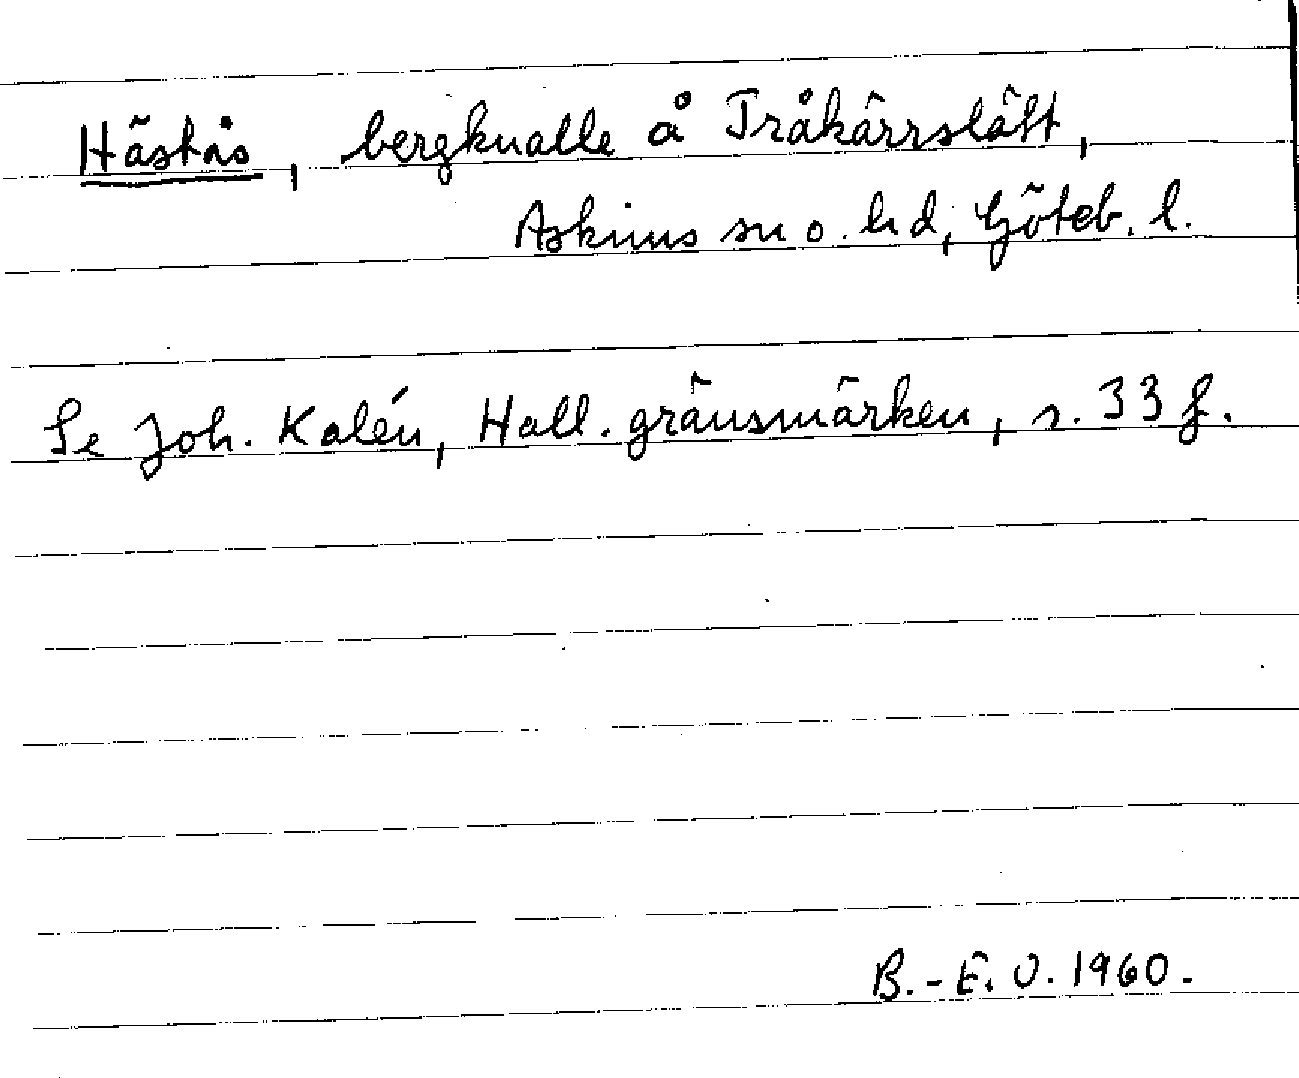 Hästås, bergknalle å Tråkärrslätt,
Askims sn o. hd, Göteb. l.
Se Joh. Kalén, Hall. gränsmärken, s. 33 f.
B.-E. O. 1960.